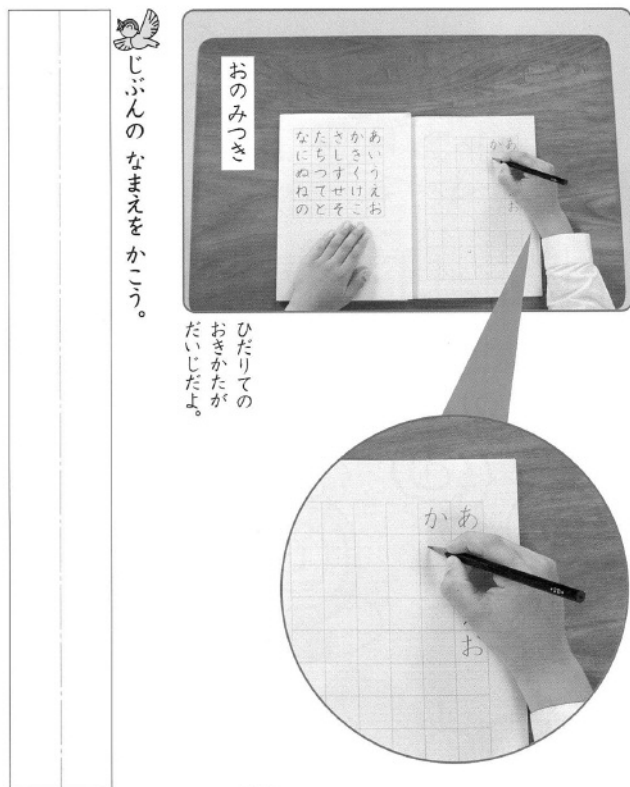 おのみつき
あいうえお
かきくけこ
さしすせそ
たちつてと
なにぬねの
あ
お
か
ひだりての
おきかたが
だいじだよ。
あ
お
か
じぶんの なまえを かこう。